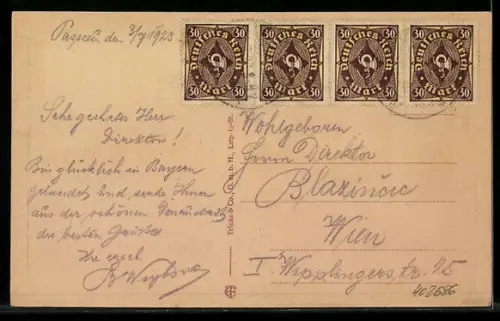 Passau den 3/7 1923
30 30 30 30 30 30 30 30
Deutsches Reich Deutsches Reich Deutsches Reich Deutsches Reich
30 Mark 30 30 Mark 30 30 Mark 30 30 Mark 30
Sehr geehrter Herr
Direktor!
Bin glücklich in Bayern
gelandet und sende Ihnen
aus der schönen Donaustadt
die besten Grüsse
Ihr
Trinks & Co., G. m. b. H., Leipzig
Wohlgeboren
Herrn Direktor
Blazincic
Wien
I Wipplingerstr. 25
402686